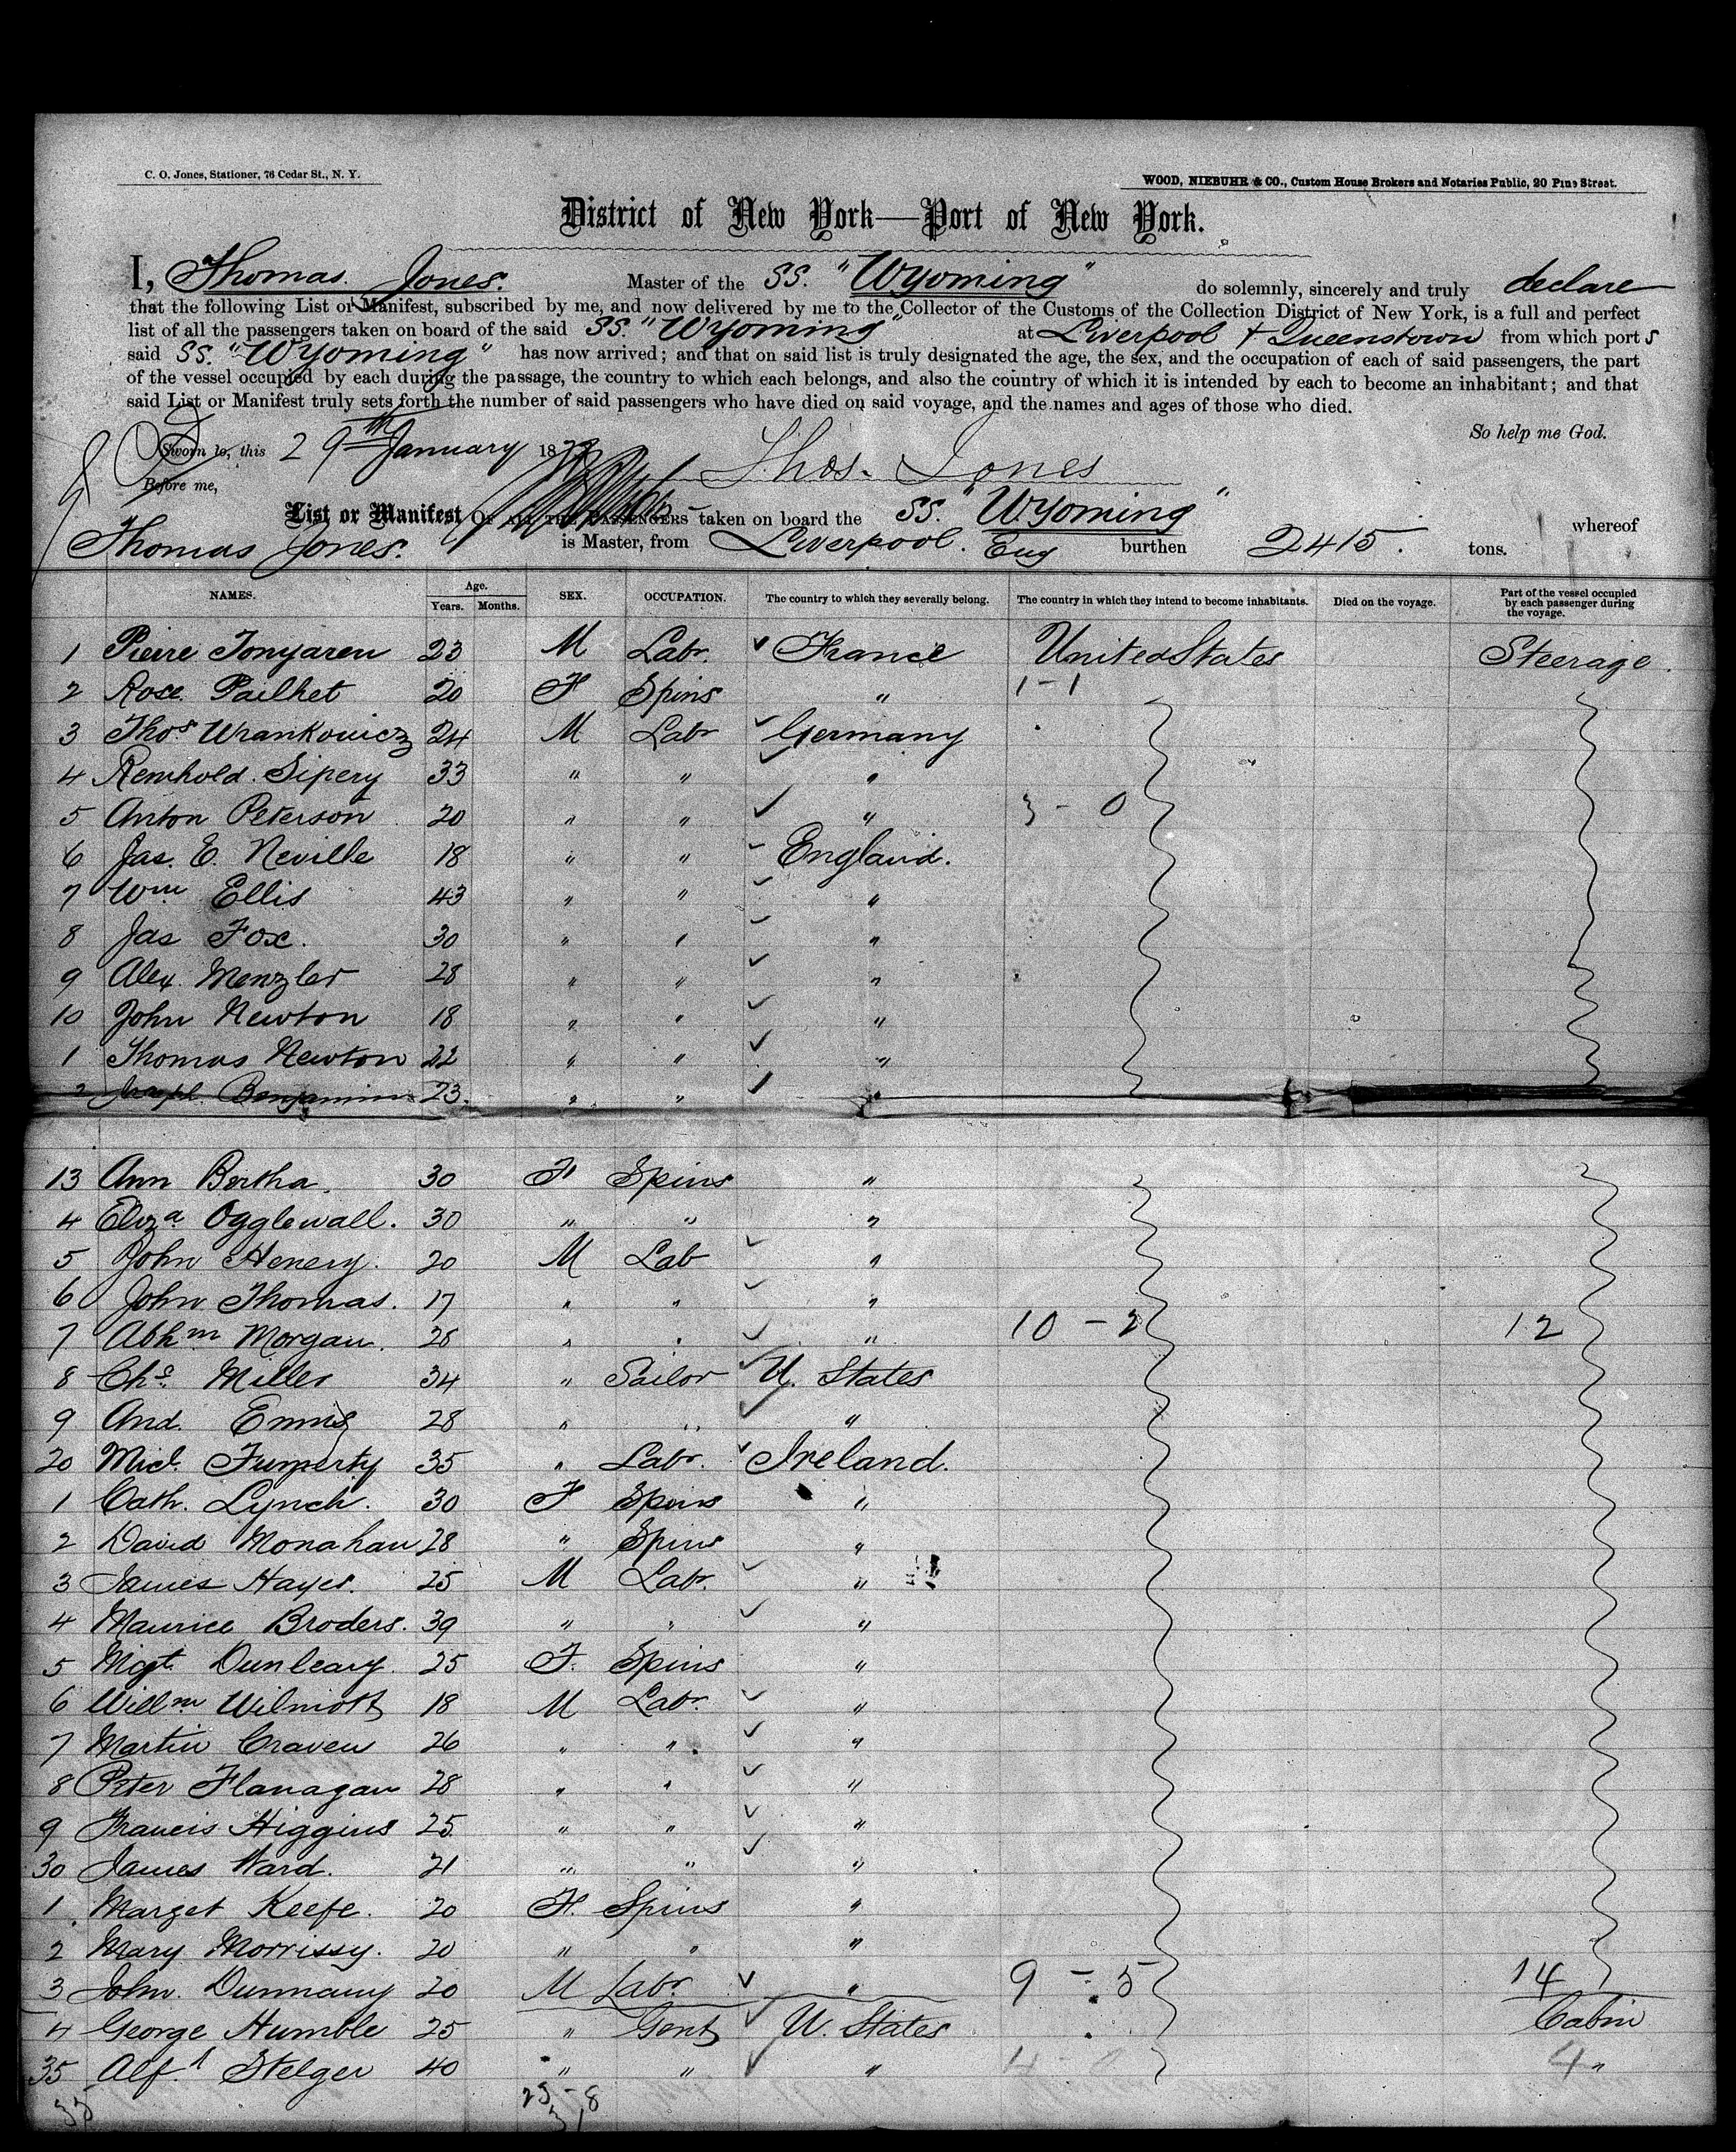 C. O. Jones, Stationer, 76 Cedar St., N. Y.
WOOD, NIEBUHR & CO., Custom House Brokers and Notaries Public, 20 Pine Street.
District of New York—Port of New York.
I, Thomas Jones. Master of the SS. "Wyoming" do solemnly, sincerely and truly declare
that the following List or Manifest, subscribed by me, and now delivered by me to the Collector of the Customs of the Collection District of New York, is a full and perfect
list of all the passengers taken on board of the said SS. "Wyoming" at Liverpool & Queenstown from which port s
said SS. "Wyoming" has now arrived; and that on said list is truly designated the age, the sex, and the occupation of each of said passengers, the part
of the vessel occupied by each during the passage, the country to which each belongs, and also the country of which it is intended by each to become an inhabitant; and that
said List or Manifest truly sets forth the number of said passengers who have died on said voyage, and the names and ages of those who died.
So help me God.
Sworn to, this 29th January 18
Thos. Jones
Before me,
List or Manifest OF ALL THE PASSENGERS taken on board the SS. "Wyoming" whereof
Thomas Jones. is Master, from Liverpool. Eng burthen 2415. tons.
NAMES. Age. Years. Months. SEX. OCCUPATION. The country to which they severally belong. The country in which they intend to become inhabitants. Died on the voyage. Part of the vessel occupied by each passenger during the voyage.
1 Pierre 23 M Labr. France United States Steerage
2 Rose Pailhet 20 F Spins " 1-1
3 Thos Wrankowicz 24 M Labr Germany
4 Reinhold. Sipery 33 " " "
5 Anton Peterson 20 " " " 3-0
6 Jas. E. Neville 18 " " England.
7 Wm Ellis 43 " " "
8 Jas Fox. 30 " " "
9 Alex. Menzler 28 " " "
10 John Newton 18 " " "
1 Thomas Newton 22 " " "
2 Joseph Benjamin 23. " " "
13 Ann Bertha. 30 F Spins "
4 Eliza Ogglewall. 30 " " "
5 John Henery. 20 M Lab "
6 John Thomas. 17 " " "
7 Abhm Morgan. 28 " " " 10-2 12
8 Chs. Miller 34 " Sailor U. States
9 And. Ennis 28 " " "
20 Micl. 35 " Labr. Ireland.
1 Cath. Lynch. 30 F Spins "
2 David Monahan 28 " Spins "
3 James Hayes. 25 M Labr. "
4 Maurice Broders. 39 " " "
5 Mgt. Dunleavy. 25 F. Spins "
6 Willm Wilmott 18 M Labr. "
7 Martin Craven 26 " " "
8 Peter Flanagan 28 " " "
9 Francis Higgins 25. " " "
30 James Ward. 21 " " "
1 Marget Keefe. 20 F. Spins "
2 Mary Morrissy. 20 " " "
3 John. Dunnany 20 M Labr " 9-5 14
4 George Humble 25 " Gent U. States Cabin
35 Alfd Stelger 40 " " " 4-0 4 "
35